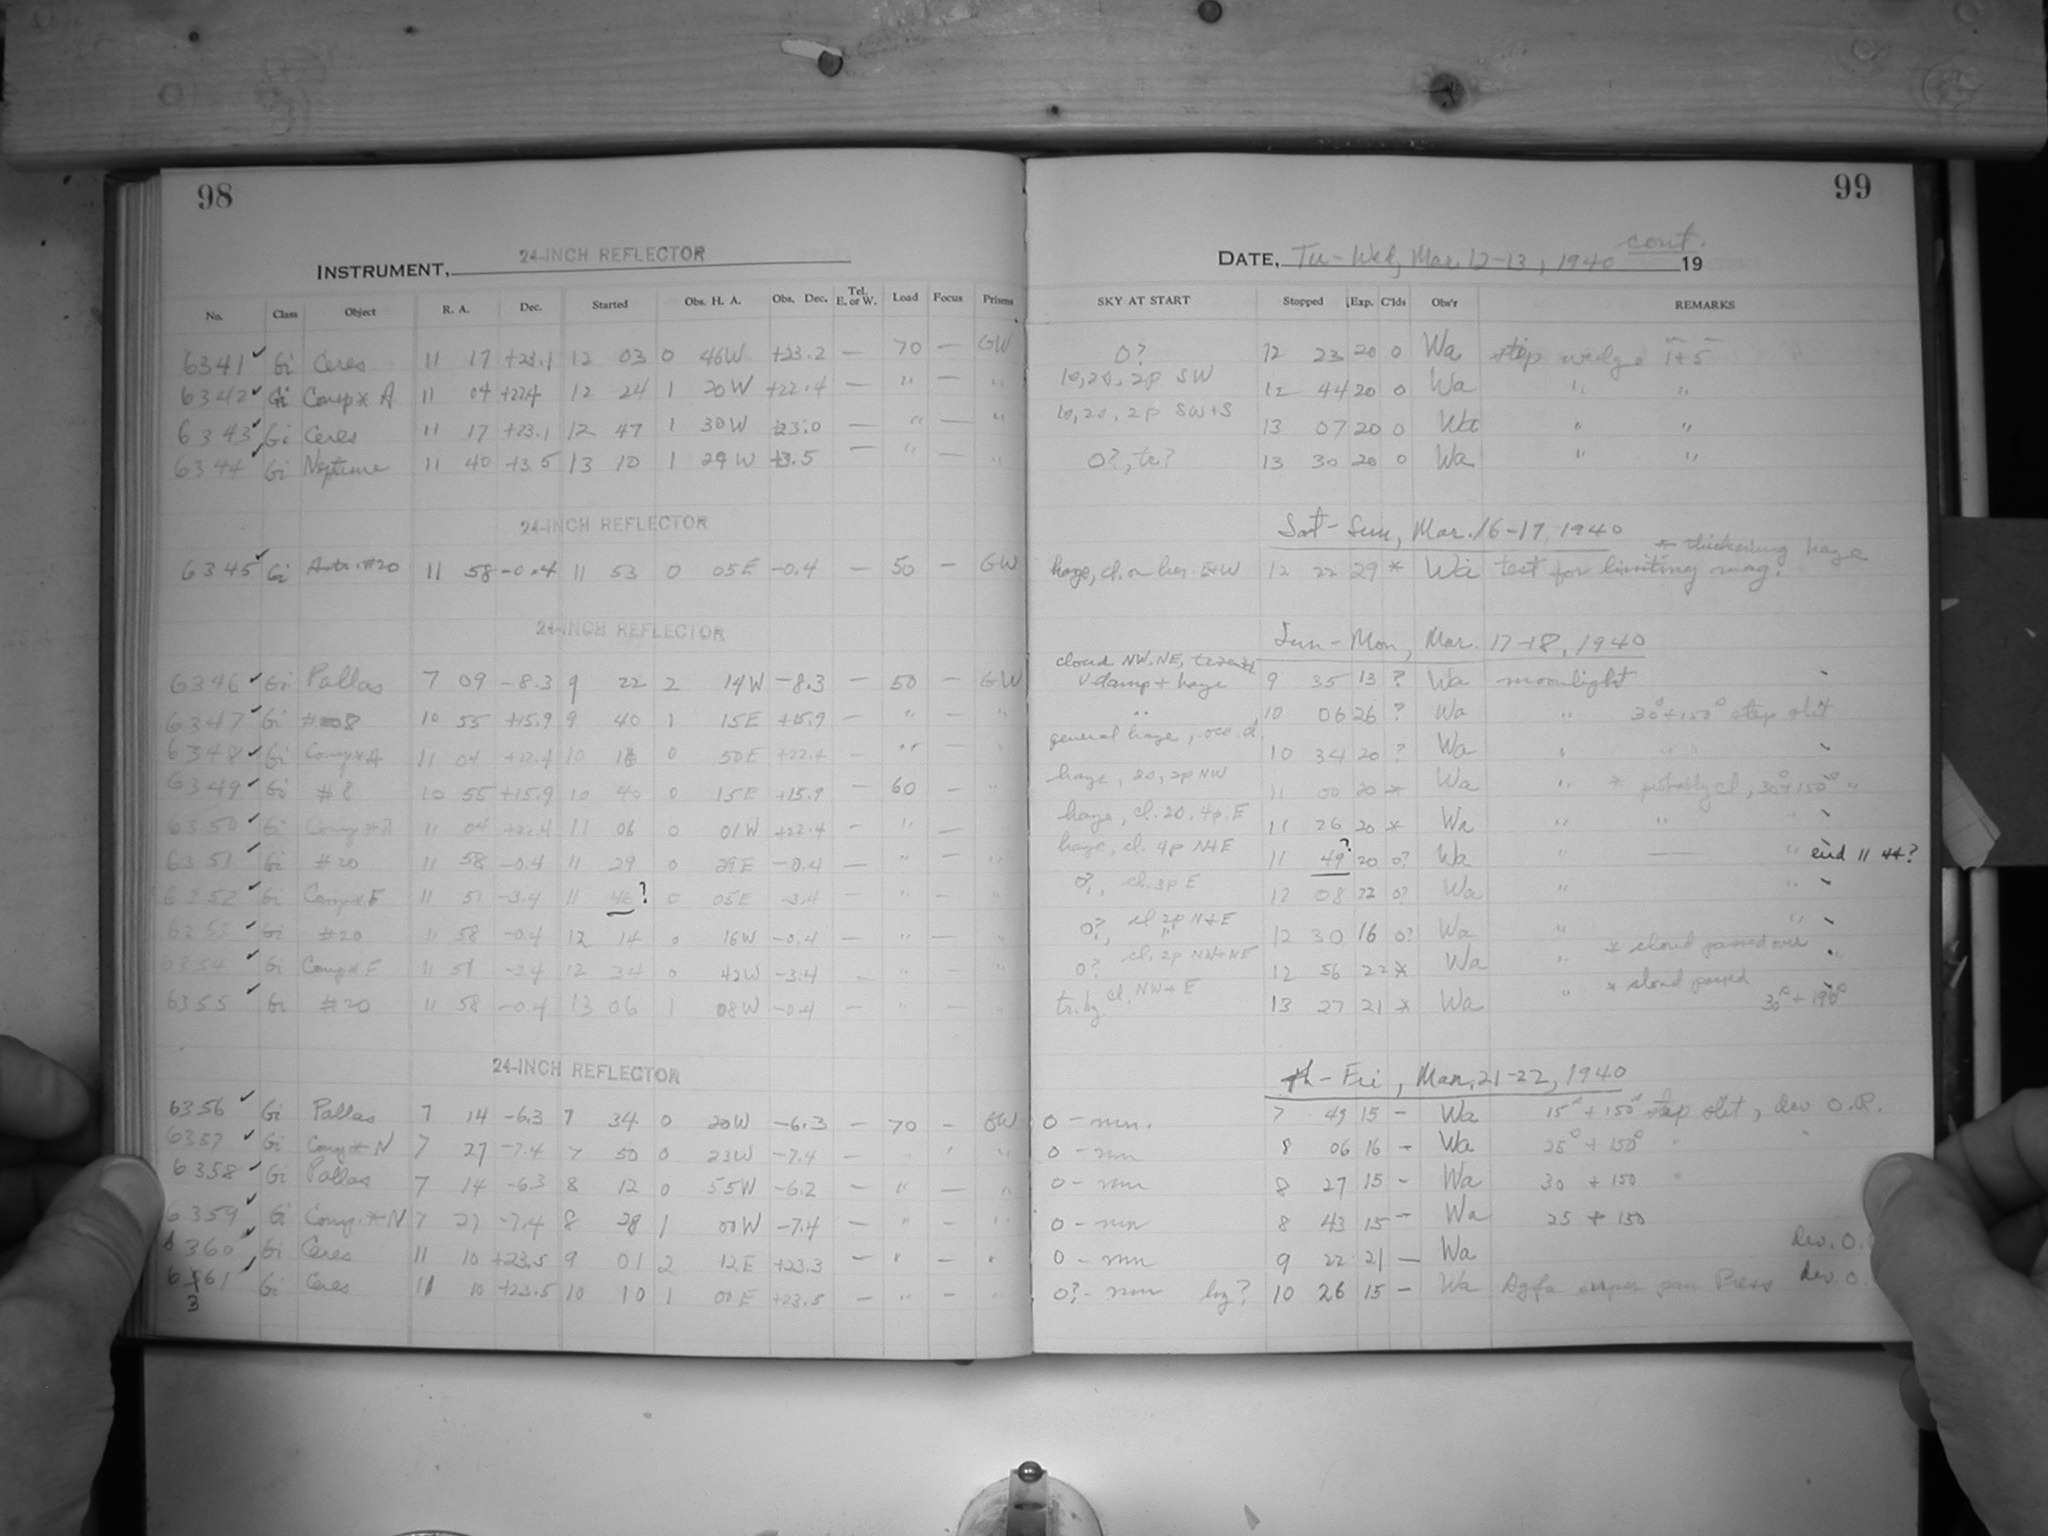 98
99
INSTRUMENT, 24-INCH REFLECTOR
DATE, Tu-Wed, Mar. 12-13, 1940 cont. 19
No. Class Object R. A. Dec. Started Obs. H. A. Obs. Dec. Tel. E. or W. Load Focus Prisms SKY AT START Stopped Exp. C'lds Obs'r REMARKS
6341 ✓ Gi Ceres 11 17 +23.1 12 03 0 46W +23.2 — 70 — GW 0? 12 23 20 0 Wa step wedge 1+5
6342 ✓ Gi Comp * A 11 04 +22.4 12 24 1 20W +22.4 — " — " 10, 20, 2p SW 12 44 20 0 Wa " "
6343 ✓ Gi Ceres 11 17 +23.1 12 47 1 30W +23.0 — " — " 10, 20, 2p SW+S 13 07 20 0 Wa " "
6344 ✓ Gi Neptune 11 40 +3.5 13 10 1 29W +3.5 — " — " 0?, tr? 13 30 20 0 Wa " "
24-INCH REFLECTOR Sat-Sun, Mar. 16-17, 1940
* thickening haze
6345 ✓ Gi #20 11 58 -0.4 11 53 0 05E -0.4 — 50 — GW haze, cl. on hor. E+W 12 22 29 * Wa test for limiting mag.
24-INCH REFLECTOR Sun-Mon, Mar. 17-18, 1940
6346 ✓ Gi Pallas 7 09 -8.3 9 22 2 14W -8.3 — 50 — GW cloud NW, NE, v damp + haze 9 35 13 ? Wa moonlight
6347 ✓ Gi #8 10 55 +15.9 9 40 1 15E +15.9 — " — " " 10 06 26 ? Wa " 30° + 150° step slit
6348 ✓ Gi Comp * A 11 04 +22.4 10 0 50E +22.4 — " — " general haze, occ. cl. 10 34 20 ? Wa " "
6349 ✓ Gi #8 10 55 +15.9 10 40 0 15E +15.9 — 60 — " haze, 20, 2p NW 11 00 20 * Wa " * probably cl, 30°+150° "
6350 ✓ Gi Comp * A 11 04 +22.4 11 06 0 01W +22.4 — " — " haze, cl. 20, 4p. E 11 26 20 * Wa " " "
6351 ✓ Gi #20 11 58 -0.4 11 29 0 29E -0.4 — " — " haze, cl. 4p N+E 11 49? 20 0? Wa " — " end 11 44?
6352 ✓ Gi Comp * F 11 51 -3.4 11 46? 0 05E -3.4 — " — " 0?, cl. 3p E 12 08 22 0? Wa " "
6353 ✓ Gi #20 11 58 -0.4 12 14 0 16W -0.4 — " — " 0?, cl 2p N+E 12 30 16 0? Wa " "
6354 ✓ Gi Comp * F 11 51 -3.4 12 34 0 42W -3.4 — " — " 0? cl. 2p NW+NE 12 56 22 * Wa " * cloud passed over "
6355 ✓ Gi #20 11 58 -0.4 13 06 1 08W -0.4 — " — " tr. hz cl. NW+E 13 27 21 * Wa " * cloud passed 30° + 190°
24-INCH REFLECTOR Th-Fri, Mar. 21-22, 1940
6356 ✓ Gi Pallas 7 14 -6.3 7 34 0 20W -6.3 — 70 — GW 0 - mn. 7 49 15 - Wa 15° + 150° step slit, dev O.P.
6357 ✓ Gi Comp * N 7 27 -7.4 7 50 0 23W -7.4 — " ' " 0 - mn 8 06 16 - Wa 25° + 150° "
6358 ✓ Gi Pallas 7 14 -6.3 8 12 0 55W -6.2 — " — " 0 - mn 8 27 15 - Wa 30 + 150 "
6359 ✓ Gi Comp. * N 7 27 -7.4 8 28 1 00W -7.4 — " — " 0 - mn 8 43 15 - Wa 25 + 150
6360 ✓ Gi Ceres 11 10 +23.5 9 01 2 12E +23.3 — " — " 0 - mn 9 22 21 — Wa Dev. O.
6361 ✓ Gi Ceres 11 10 +23.5 10 10 1 00E +23.5 — " — " 0? - mn hz? 10 26 15 - Wa Agfa super pan Press Dev. O.
3